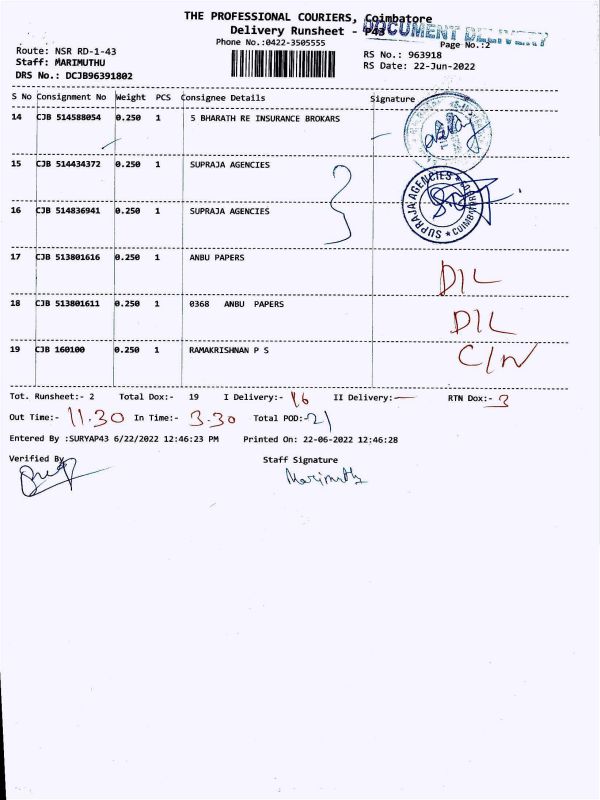 THE PROFESSIONAL COURIERS, Coimbatore
Delivery Runsheet - P43
DOCUMENT DELIVERY
Phone No.:0422-3505555
Page No.:2
Route: NSR RD-1-43
RS No.: 963918
Staff: MARIMUTHU
RS Date: 22-Jun-2022
DRS No.: DCJB96391802
S No Consignment No Weight PCS Consignee Details Signature
14 CJB 514588054 0.250 1 S BHARATH RE INSURANCE BROKARS
15 CJB 514434372 0.250 1 SUPRAJA AGENCIES
SUPRAJA AGENCIES * COIMBATORE *
16 CJB 514836941 0.250 1 SUPRAJA AGENCIES
17 CJB 513801616 0.250 1 ANBU PAPERS
D/L
18 CJB 513801611 0.250 1 0368 ANBU PAPERS
D/L
19 CJB 160100 0.250 1 RAMAKRISHNAN P S
C/N
Tot. Runsheet:- 2 Total Dox:- 19 I Delivery:- 16 II Delivery:- — RTN Dox:- 3
Out Time:- 11.30 In Time:- 3.30 Total POD:- 21
Entered By :SURYAP43 6/22/2022 12:46:23 PM Printed On: 22-06-2022 12:46:28
Verified By
Staff Signature
Marimuthu